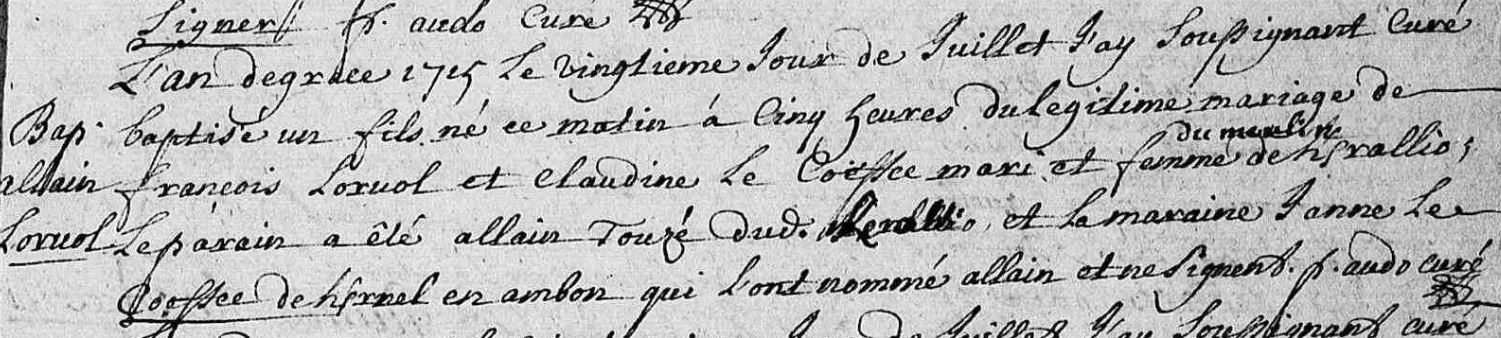 Signer f. audo Curé
L'an de grace 1715 Le vingtieme Jour de Juillet J'ay Soussignant Curé
Bap. baptisé un fils né ce matin à Cinq heures du legitime mariage de
du meulin
allain françois Loruol et Claudine Le Coessee mari et femme de
Loruol Le parain a êté allain Touzé dud. et la maraine Janne Le
Coessee de en ambon qui l'ont nommé allain et ne Signent. f. audo curé
Juillet J'ay Soussignant curé